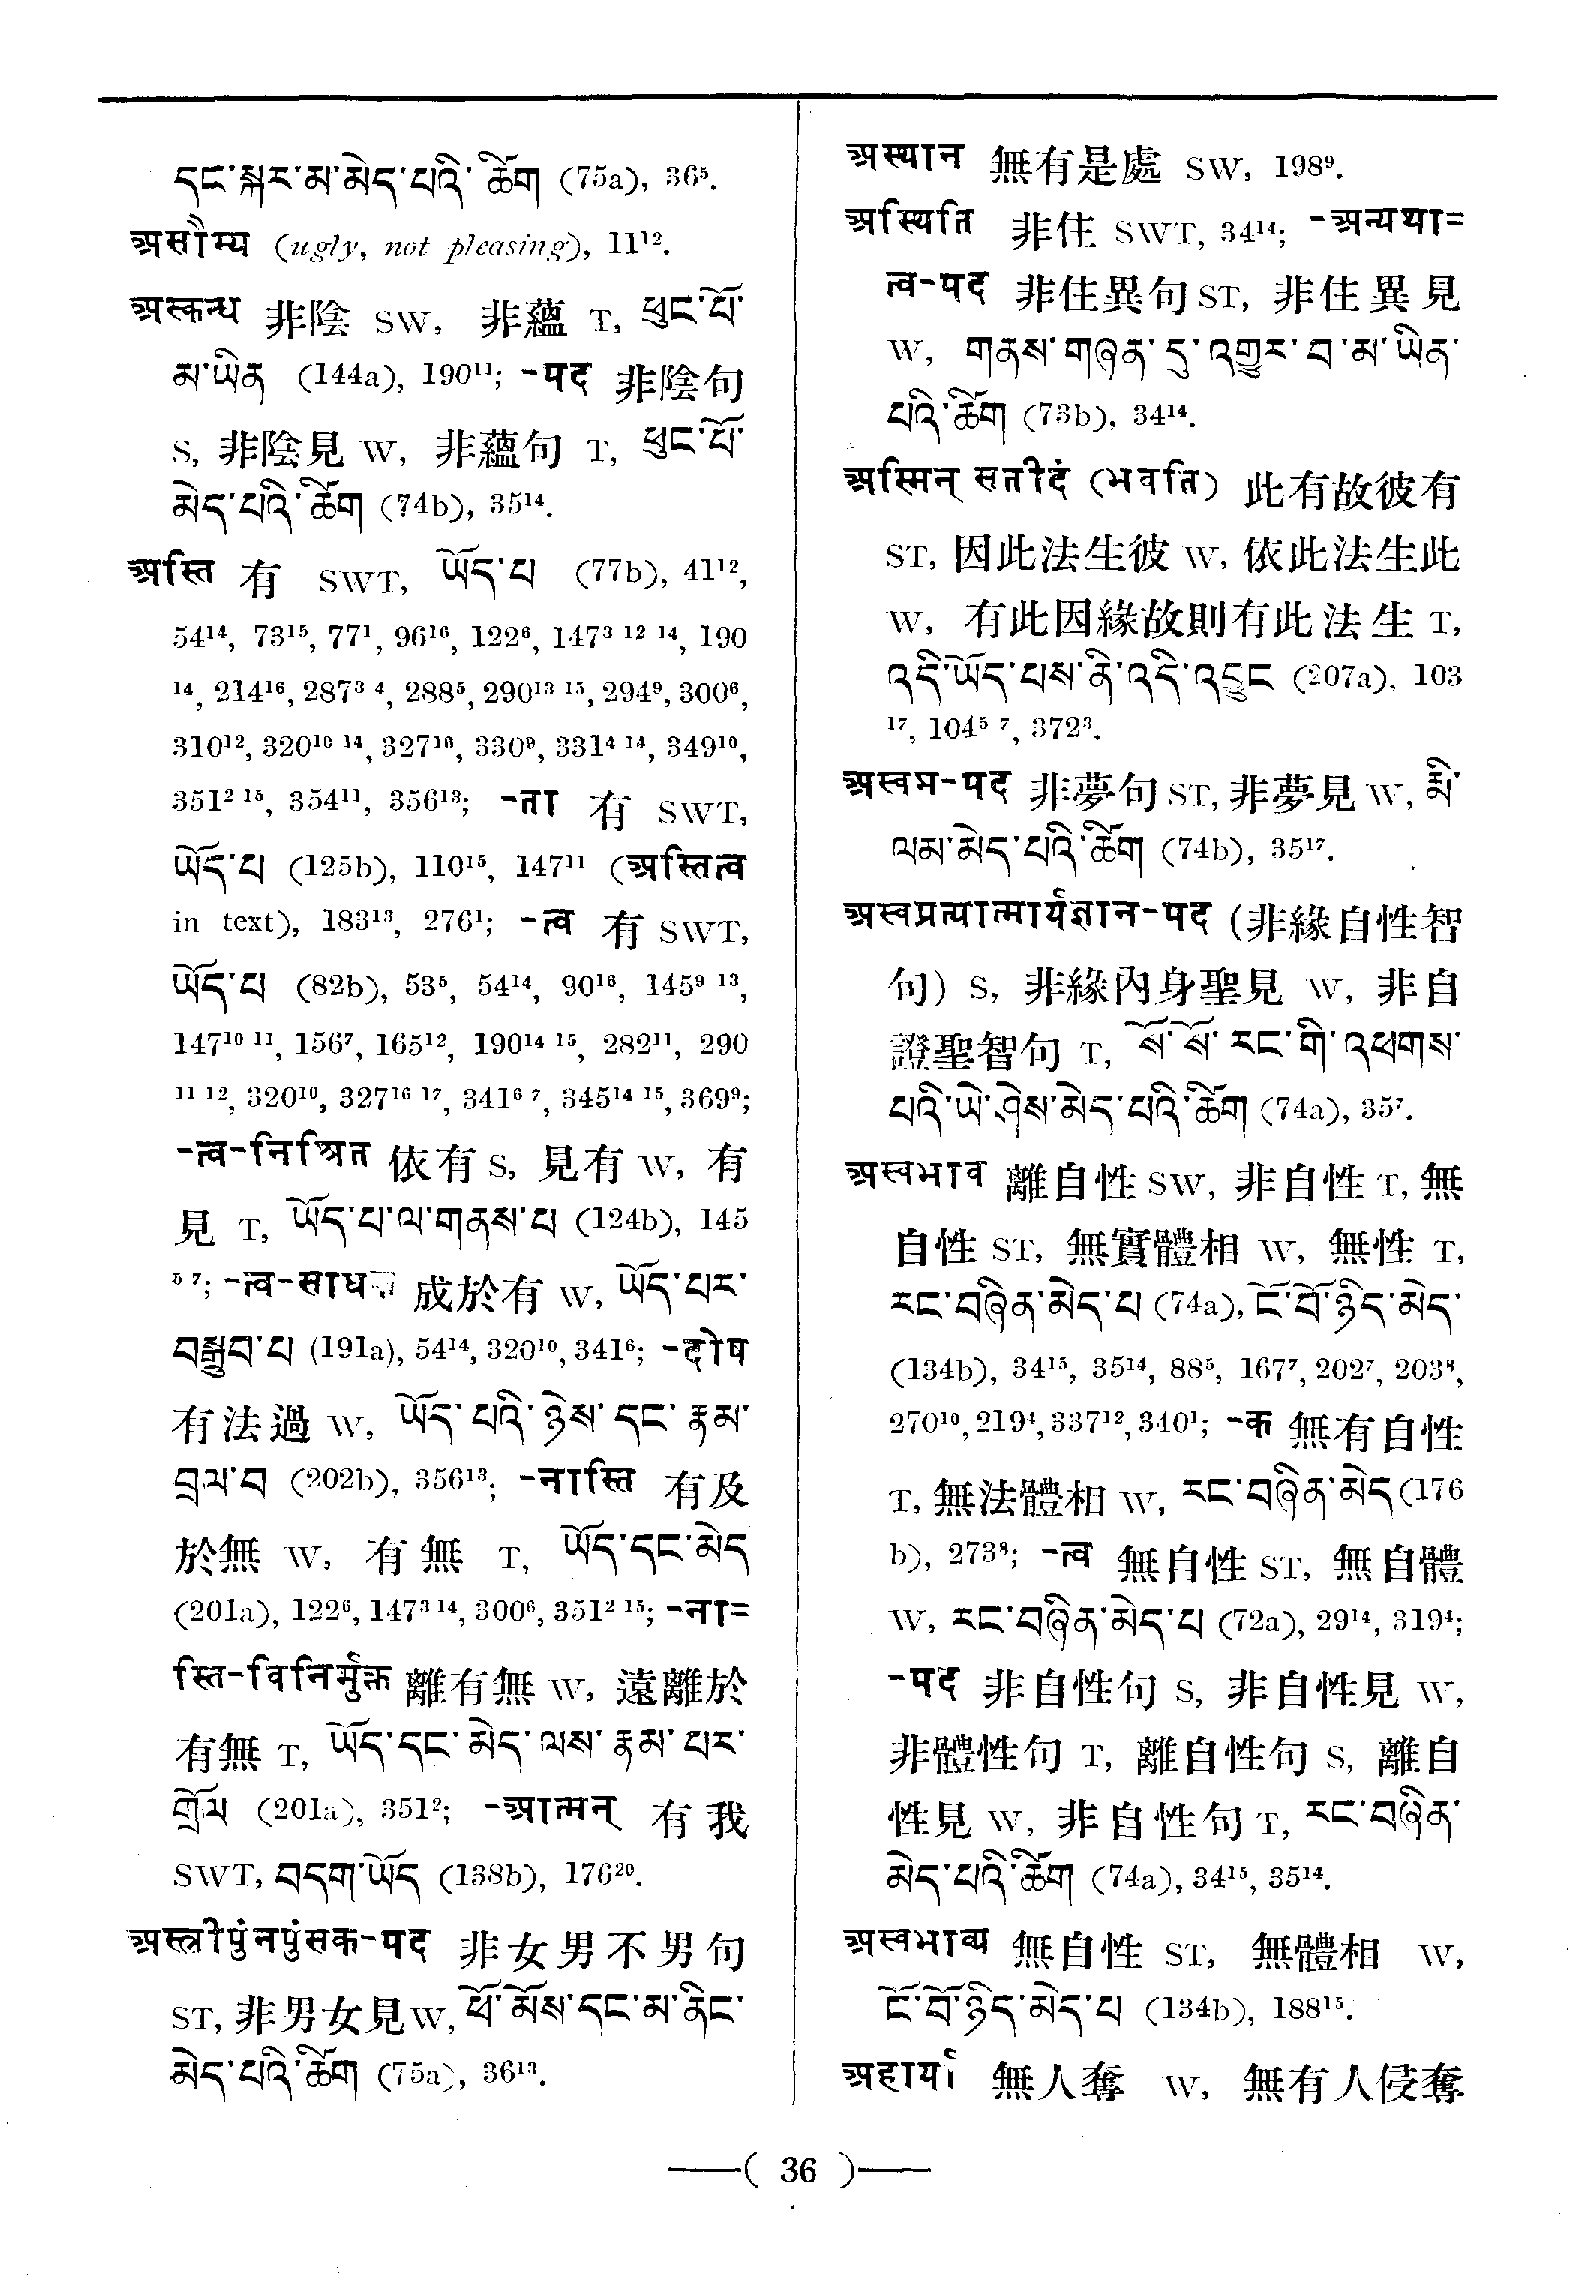 དང་སྐར་མ་མེད་པའི་ཚིག (75a), 36⁵.
असौम्य (ugly, not pleasing), 11¹².
अस्कन्ध 非陰 SW, 非蘊 T, ཕུང་པོ་
མ་ཡིན (144a), 190¹¹; -पद 非陰句
S, 非陰見 W, 非蘊句 T, ཕུང་པོ་
མེད་པའི་ཚིག (74b), 35¹⁴.
अस्ति 有 SWT, ཡོད་པ (77b), 41¹²,
54¹⁴, 73¹⁵, 77¹, 96¹⁶, 122⁶, 147³ ¹² ¹⁴, 190
¹⁴, 214¹⁶, 287³ ⁴, 288⁵, 290¹³ ¹⁵, 294⁹, 300⁶,
310¹², 320¹⁰ ¹⁴, 327¹⁶, 330⁹, 331⁴ ¹⁴, 349¹⁰,
351² ¹⁵, 354¹¹, 356¹³; -ता 有 SWT,
ཡོད་པ (125b), 110¹⁵, 147¹¹ (अस्तित्व
in text), 183¹³, 276¹; -त्व 有 SWT,
ཡོད་པ (82b), 53⁵, 54¹⁴, 90¹⁶, 145⁹ ¹³,
147¹⁰ ¹¹, 156⁷, 165¹², 190¹⁴ ¹⁵, 282¹¹, 290
¹¹ ¹², 320¹⁰, 327¹⁶ ¹⁷, 341⁶ ⁷, 345¹⁴ ¹⁵, 369⁹;
-त्व-निश्रित 依有 S, 見有 W, 有
見 T, ཡོད་པ་ལ་གནས་པ (124b), 145
⁵ ⁷; -त्व-साधक 成於有 W, ཡོད་པར་
བསྒྲུབ་པ (191a), 54¹⁴, 320¹⁰, 341⁶; -दोष
有法過 W, ཡོད་པའི་ཉེས་དང་རྣམ་
བྲལ་བ (202b), 356¹³; -नास्ति 有及
於無 W, 有無 T, ཡོད་དང་མེད
(201a), 122⁶, 147³ ¹⁴, 300⁶, 351² ¹⁵; -ना=
स्ति-विनिर्मुक्त 離有無 W, 遠離於
有無 T, ཡོད་དང་མེད་ལས་རྣམ་པར་
གྲོལ (201a), 351²; -आत्मन् 有我
SWT, བདག་ཡོད (138b), 176²⁰.
अस्त्रीपुंनपुंसक-पद 非女男不男句
ST, 非男女見 W, ཕོ་མོས་དང་མ་ནིང་
མེད་པའི་ཚིག (75a), 36¹³.
अस्थान 無有是處 SW, 198⁹.
अस्थिति 非住 SWT, 34¹⁴; -अन्यथा=
त्व-पद 非住異句 ST, 非住異見
W, གནས་གཞན་དུ་འགྱུར་བ་མ་ཡིན་
པའི་ཚིག (73b), 34¹⁴.
अस्मिन् सतीदं (भवति) 此有故彼有
ST, 因此法生彼 W, 依此法生此
W, 有此因緣故則有此法生 T,
འདི་ཡོད་པས་ནི་འདི་འབྱུང (207a), 103
¹⁷, 104⁵ ⁷, 372³.
अस्वप्न-पद 非夢句 ST, 非夢見 W, རྨི་
ལམ་མེད་པའི་ཚིག (74b), 35¹⁷.
अस्वप्रत्यात्मार्यज्ञान-पद (非緣自性智
句) S, 非緣內身聖見 W, 非自
證聖智句 T, སོ་སོ་རང་གི་འཕགས་
པའི་ཡེ་ཤེས་མེད་པའི་ཚིག (74a), 35⁷.
अस्वभाव 離自性 SW, 非自性 T, 無
自性 ST, 無實體相 W, 無性 T,
རང་བཞིན་མེད་པ (74a), ངོ་བོ་ཉིད་མེད་
(134b), 34¹⁵, 35¹⁴, 88⁵, 167⁷, 202⁷, 203⁸,
270¹⁰, 219⁴, 337¹², 340¹; -क 無有自性
T, 無法體相 W, རང་བཞིན་མེད (176
b), 273⁸; -त्व 無自性 ST, 無自體
W, རང་བཞིན་མེད་པ (72a), 29¹⁴, 319⁴;
-पद 非自性句 S, 非自性見 W,
非體性句 T, 離自性句 S, 離自
性見 W, 非自性句 T, རང་བཞིན་
མེད་པའི་ཚིག (74a), 34¹⁵, 35¹⁴.
अस्वभाव्य 無自性 ST, 無體相 W,
ངོ་བོ་ཉིད་མེད་པ (134b), 188¹⁵.
अहार्य 無人奪 W, 無有人侵奪
( 36 )